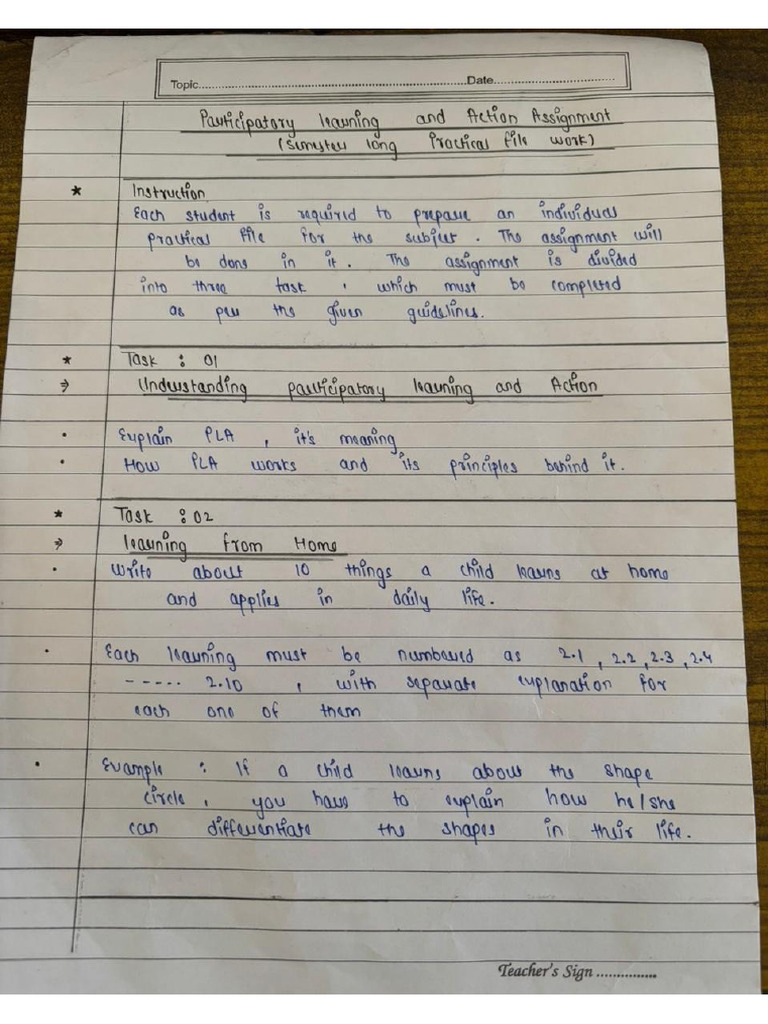 Topic..........Date..........
Participatory learning and Action Assignment
(Semester long Practical file work)
* Instruction
Each student is required to prepare an individual
practical file for the subject. The assignment will
be done in it. The assignment is divided
into three task, which must be completed
as per the given guidelines.
* Task : 01
⇒ Understanding participatory learning and Action
• Explain PLA, it's meaning
• How PLA works and its principles behind it.
* Task : 02
⇒ learning from Home
• Write about 10 things a child learns at home
and applies in daily life.
• Each learning must be numbered as 2.1, 2.2, 2.3, 2.4
----- 2.10, with separate explanation for
each one of them
• Example : If a child learns about the shape
circle, you have to explain how he/she
can differentiate the shapes in their life.
Teacher's Sign ...............